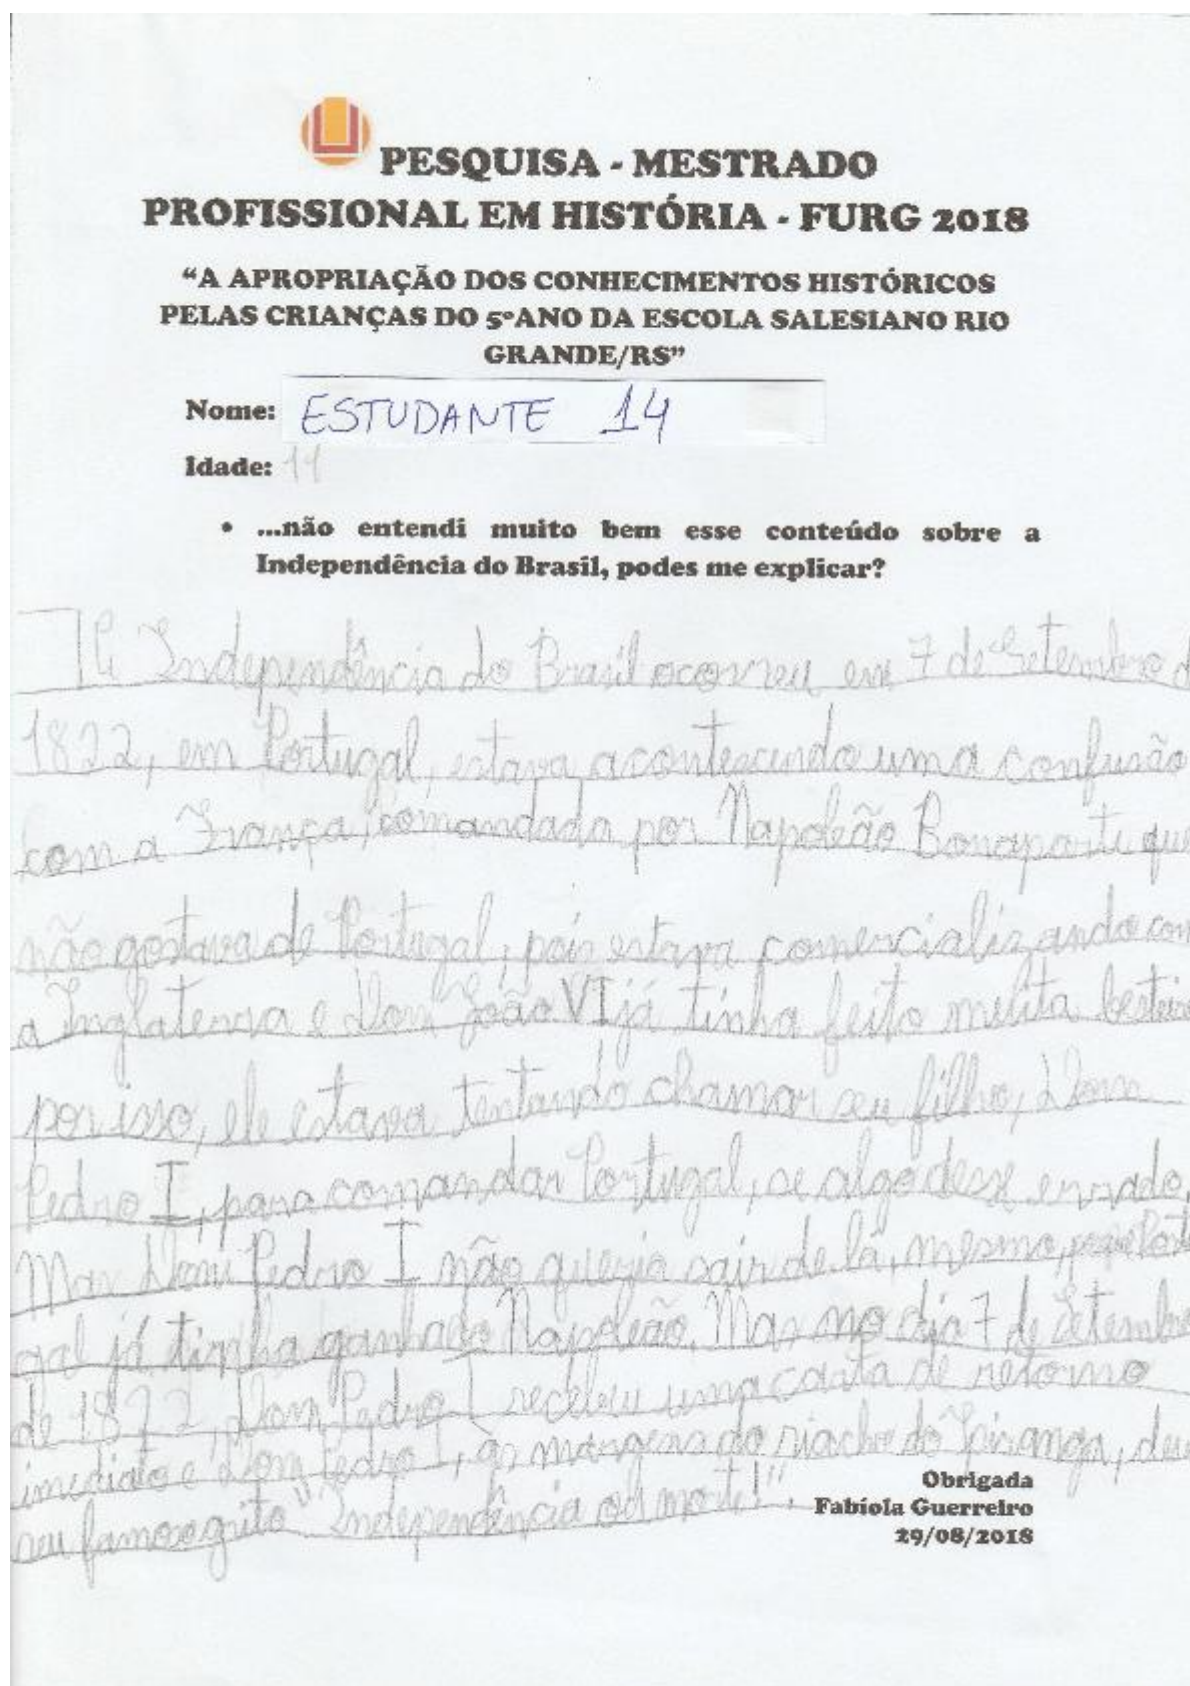 PESQUISA - MESTRADO
PROFISSIONAL EM HISTÓRIA - FURG 2018
“A APROPRIAÇÃO DOS CONHECIMENTOS HISTÓRICOS
PELAS CRIANÇAS DO 5ºANO DA ESCOLA SALESIANO RIO
GRANDE/RS”
Nome: ESTUDANTE 14
Idade: 11
• ...não entendi muito bem esse conteúdo sobre a
Independência do Brasil, podes me explicar?
A Independência do Brasil ocorreu em 7 de Setembro d
1822, em Portugal, estava acontescendo uma confusão
com a França, comandada por Napoleão Bonaparte que
não gostava de Portugal, pois estava comercializando com
a Inglaterra e Dom João VI já tinha feito muita besteira
por isso, ele estava tentando chamar seu filho, Dom
Pedro I, para comandar Portugal, se algo desse errado.
Mas Dom Pedro I não queria sair de lá, mesmo, porque Portu
gal já tinha ganhado Napoleão. Mas no dia 7 de Setembro
de 1822, Dom Pedro I recebeu uma carta de retorno
imediato e Dom Pedro I, as margens do riacho do Ipiranga, deu
seu famoso grito "Independência ou morte!".
Obrigada
Fabíola Guerreiro
29/08/2018